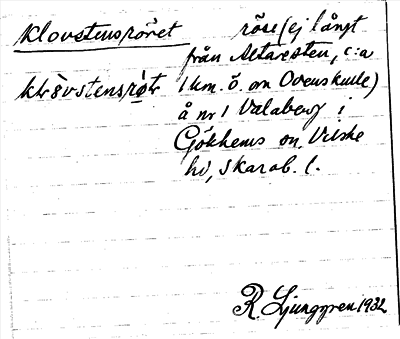 Klovstensröret röse (ej långt
från Altaresten, c:a
klòvstensrö̀t 1 km. ö. om Ovenskulle)
å nr 1 Valaberg i
Gökhems sn, Vilske
hd, Skarab. l.
R Ljunggren 1932